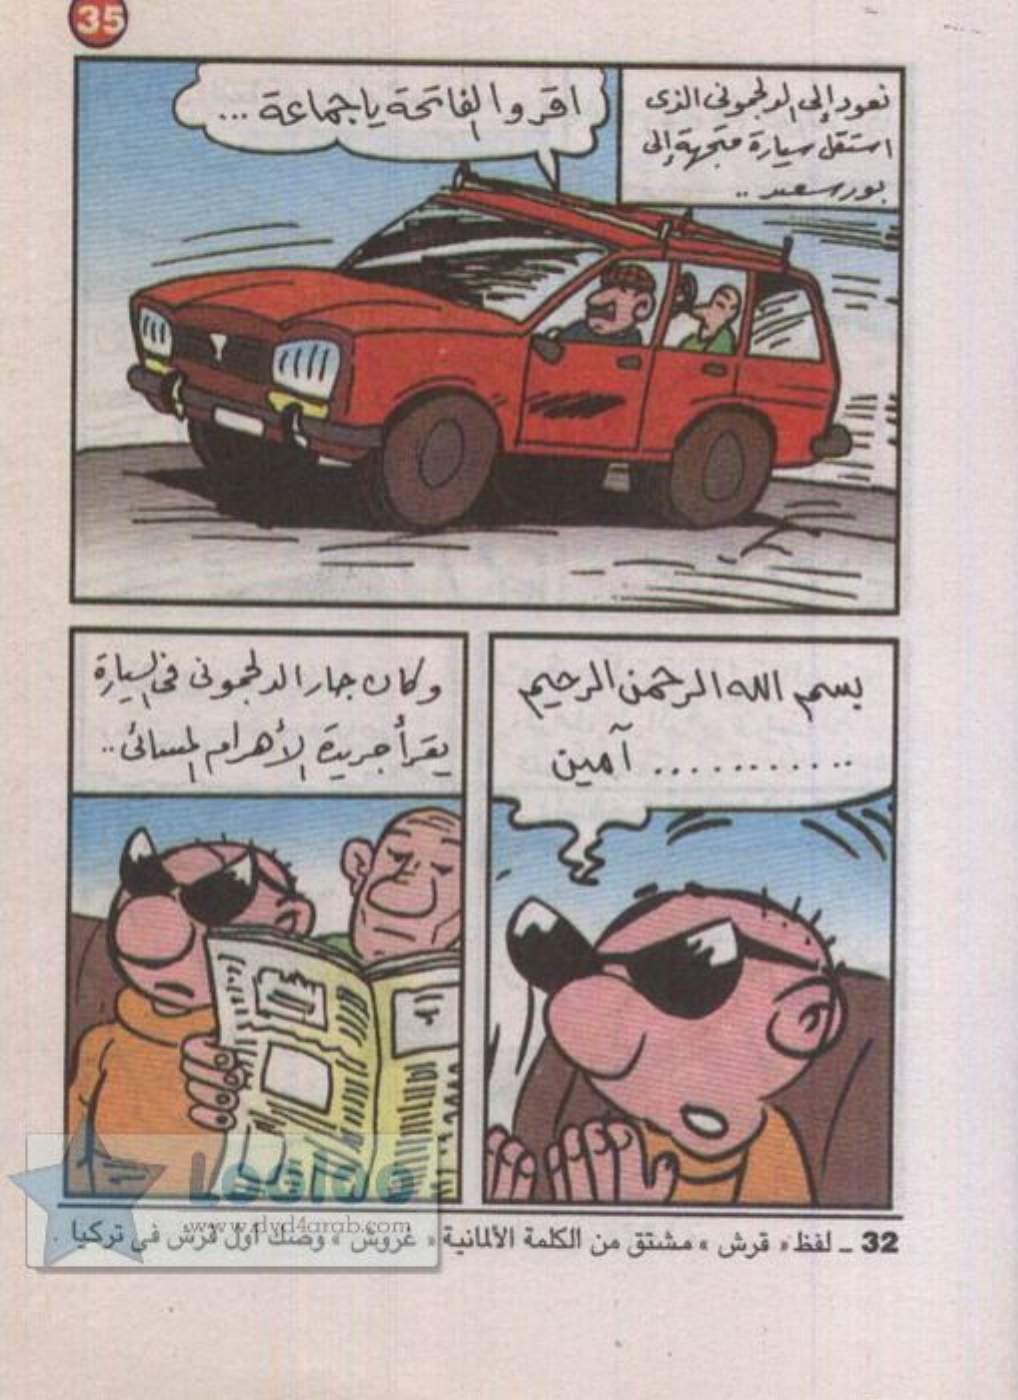 35
نعود إلى الدلجمونى الذى
استقل سيارة متجهة إلى
بورسعيد ..
اقروا الفاتحة ياجماعة ...
بسم الله الرحمن الرحيم
........... آمين
وكان جار الدلجمونى فى السيارة
يقرأ جريدة الأهرام المسائى ..
32 ـ لفظ « قرش » مشتق من الكلمة الألمانية « غروش » وصك أول قرش فى تركيا .
www.dvd4arab.com